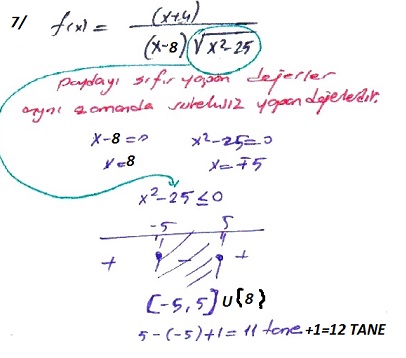 7/ f(x) = (x+4) / (x-8) √x²-25
paydayı sıfır yapan değerler
aynı zamanda süreksiz yapan değerlerdir.
x-8=0 x²-25=0
x=8 x=∓5
x²-25≤0
-5 5
+ - +
[-5,5] U{8}
5-(-5)+1=11 tane +1=12 TANE